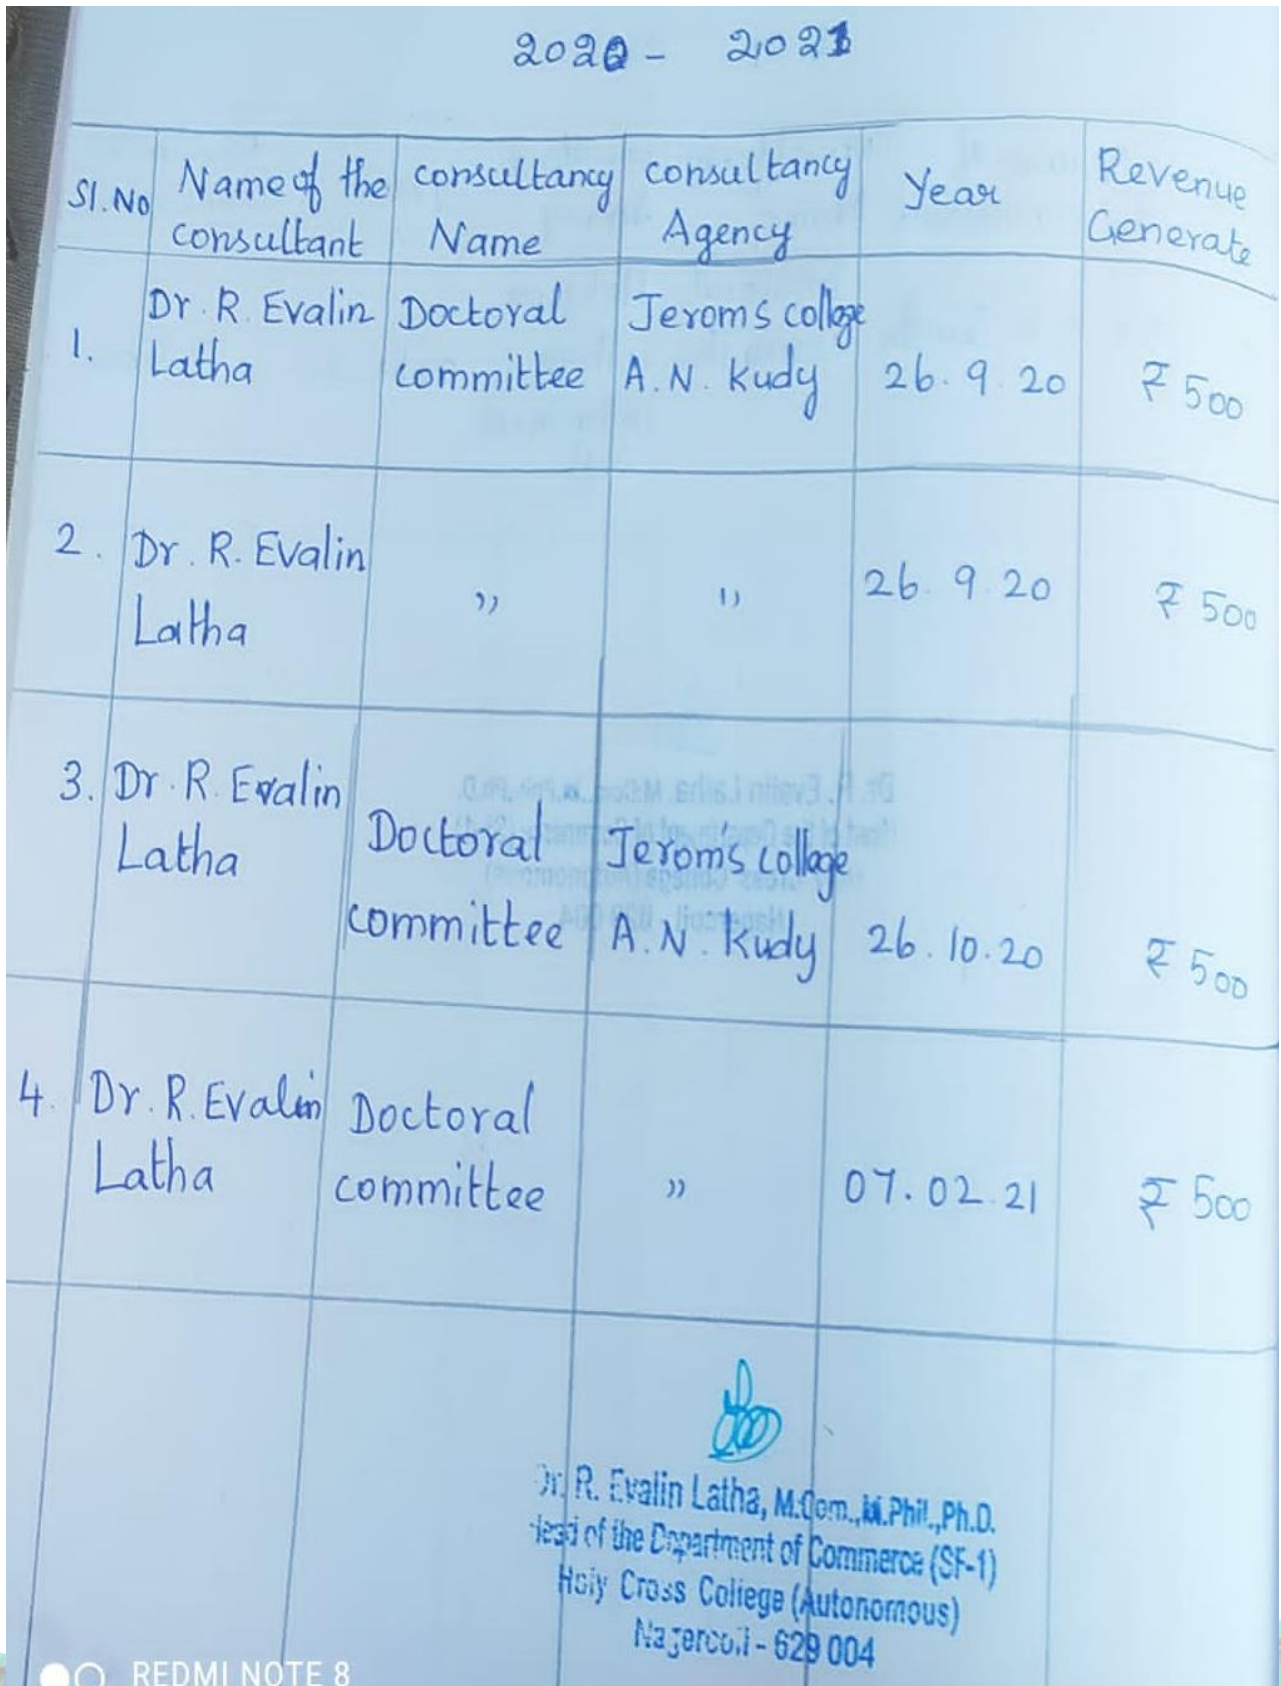 2020 - 2021
Sl. No | Name of the consultant | consultancy Name | consultancy Agency | Year | Revenue Generate
1. | Dr. R. Evalin Latha | Doctoral committee | Jeroms college A.N. Kudy | 26.9.20 | ₹ 500
2. | Dr. R. Evalin Latha | ,, | ,, | 26.9.20 | ₹ 500
3. | Dr. R. Evalin Latha | Doctoral committee | Jerom's college A.N. Kudy | 26.10.20 | ₹ 500
4. | Dr. R. Evalin Latha | Doctoral committee | ,, | 07.02.21 | ₹ 500
Dr. R. Evalin Latha, M.Com., M.Phil., Ph.D.
Head of the Department of Commerce (SF-1)
Holy Cross College (Autonomous)
Nagercoil - 629 004
REDMI NOTE 8